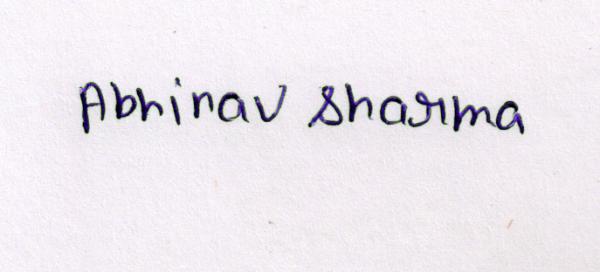 Abhinav Sharma